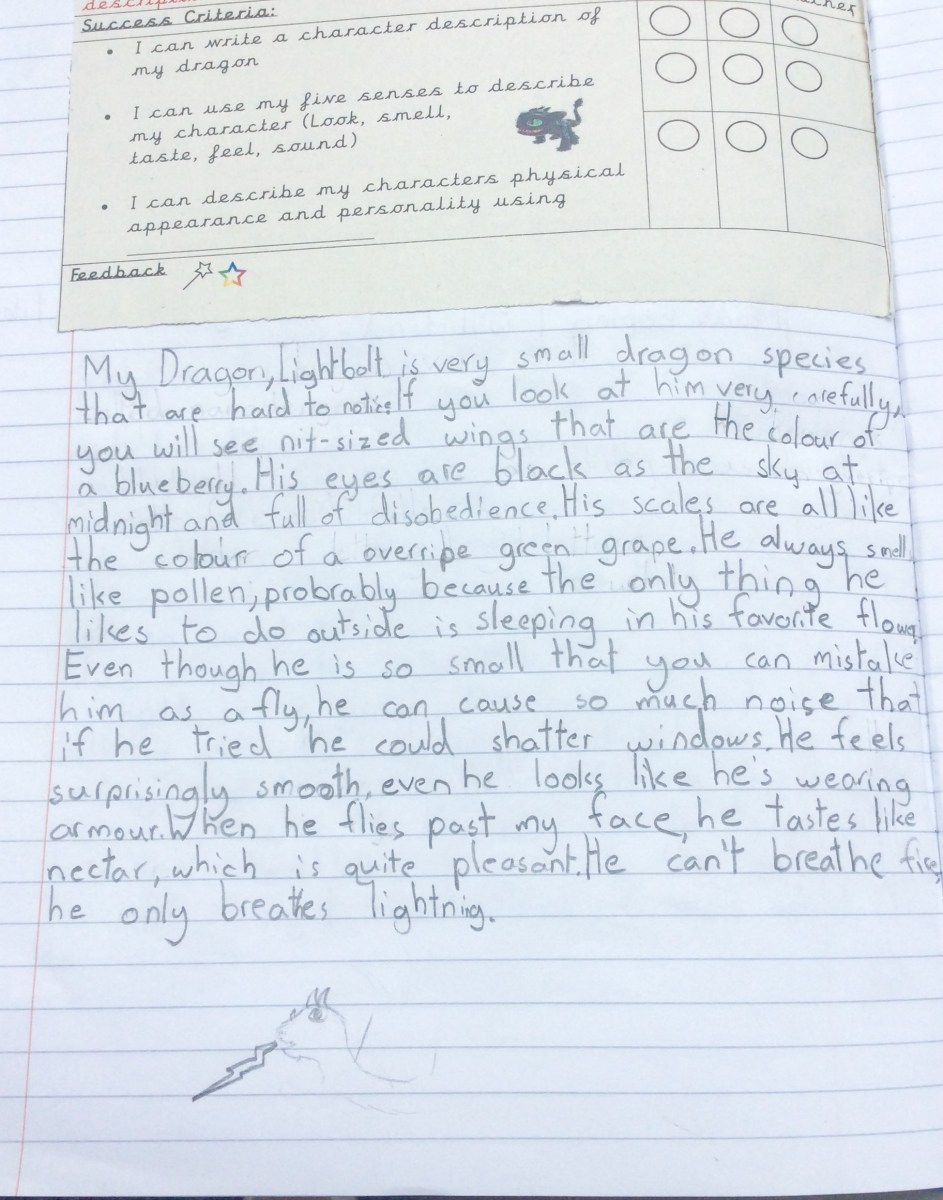 Success Criteria:
• I can write a character description of
my dragon
• I can use my five senses to describe
my character (Look, smell,
taste, feel, sound)
• I can describe my characters physical
appearance and personality using
Feedback
My Dragon, Lightbolt is very small dragon species
that are hard to notice. If you look at him very carefully,
you will see nit-sized wings that are the colour of
a blueberry. His eyes are black as the sky at
midnight and full of disobedience. His scales are all like
the colour of a overripe green grape. He always smell
like pollen, probrably because the only thing he
likes to do outside is sleeping in his favorite flower
Even though he is so small that you can mistake
him as a fly, he can cause so much noise that
if he tried he could shatter windows. He feels
surprisingly smooth, even he looks like he's wearing
armour. When he flies past my face, he tastes like
nectar, which is quite pleasant. He can't breathe fire,
he only breathes lightnig.